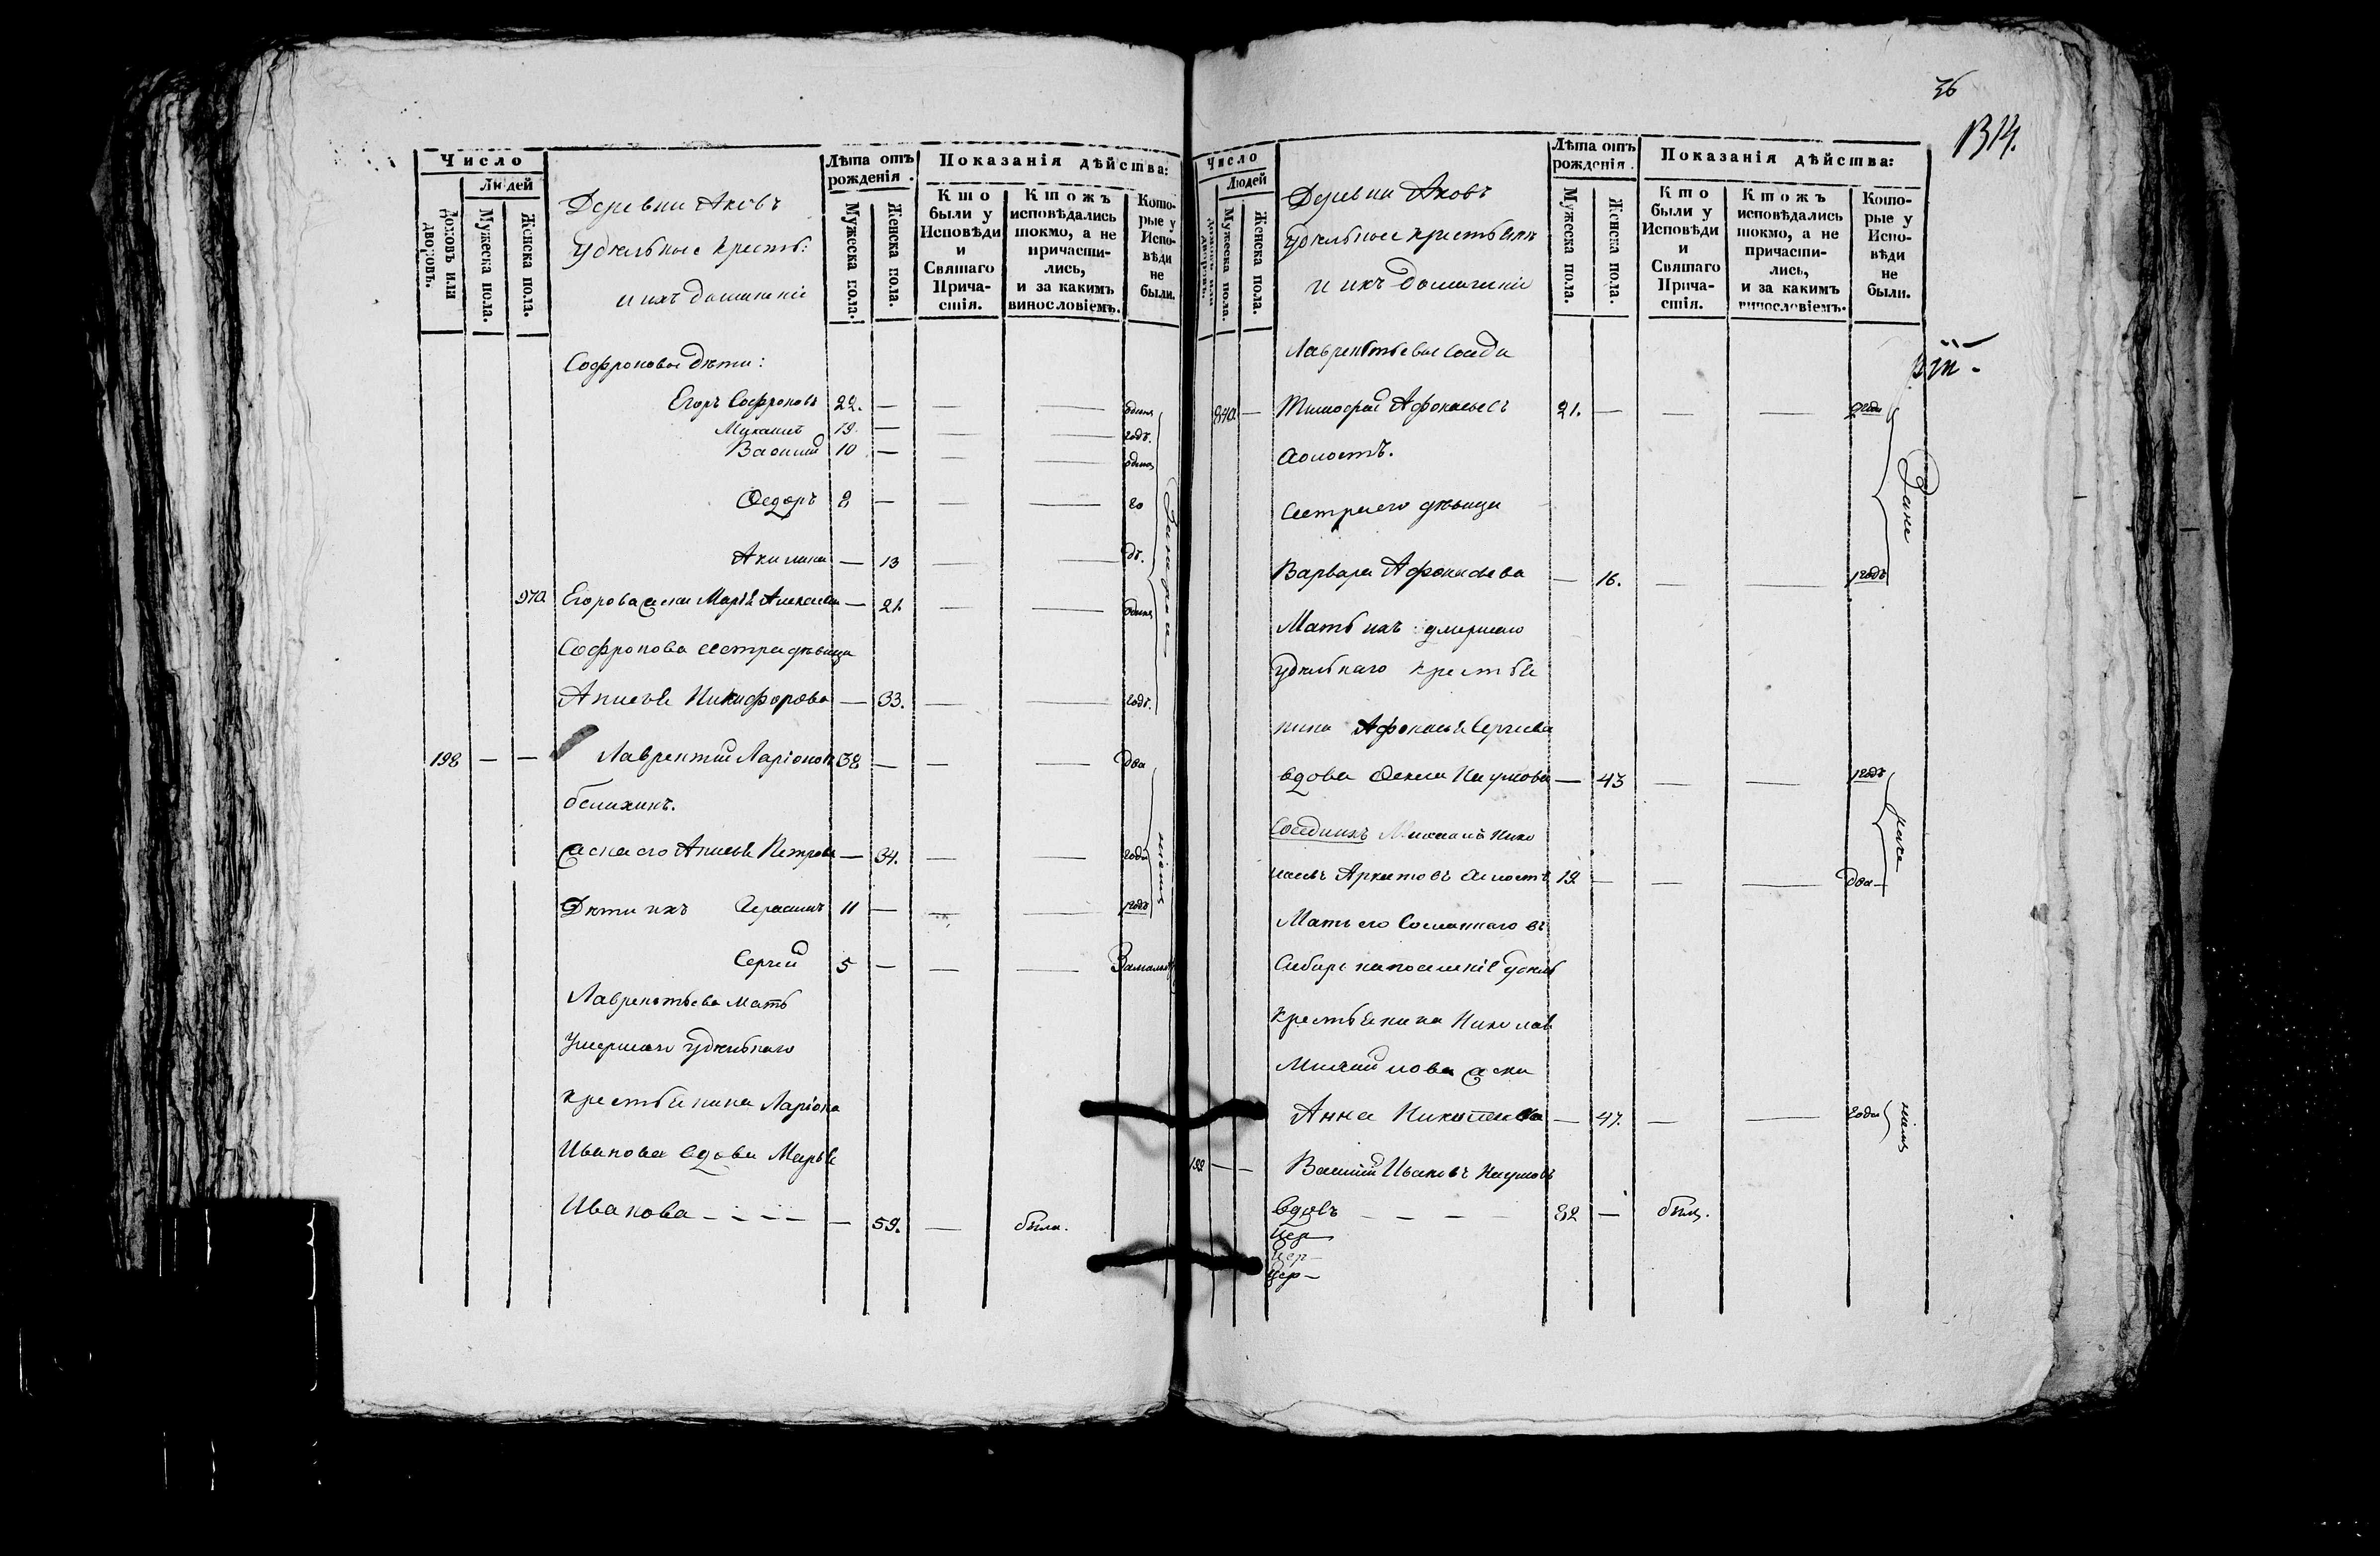 Число
Людей
домовъ или дворовъ.
Мужеска пола.
Женска пола.
Деревни Аковъ
Удѣльные крестья:
и ихъ домашніе
Лѣта отъ рожденія.
Мужеска пола.
Женска пола.
Показанія дѣйства:
Кто были у Исповѣди и Святаго Причастія.
Ктожъ исповѣдались токмо, а не причастились, и за какимъ винословіемъ.
Которые у Исповѣди не были.
Софроновы дѣти:
Егоръ Софроновъ 22. — — — одинъ
19. — — — годъ.
Василій 10 — — — одинъ
Ѳедоръ 8 — — — го
Акилина — 13 — — дъ.
Егорова жена Марѳа — 21. — — одинъ
Софронова сестра дѣвица
Анисья Никифорова — 33. — — годъ.
198 — — Лаврентій Ларіоновъ 38 — — — два
жена его Анисья Петрова — 34. — — года
Дѣти ихъ Герасимъ 11 — — — годъ
Сергій 5 — — —
Лаврентьева мать
умершаго удѣльнаго
крестьянина Ларіона
Иванова вдова Марья
Иванова — — — — 59. — была.
36
1314.
Число
Людей
домовъ или дворовъ.
Мужеска пола.
Женска пола.
Деревни Аковъ
удѣльные крестьяне
и ихъ домашніе
Лѣта отъ рожденія.
Мужеска пола.
Женска пола.
Показанія дѣйства:
Кто были у Исповѣди и Святаго Причастія.
Ктожъ исповѣдались токмо, а не причастились, и за какимъ винословіемъ.
Которые у Исповѣди не были.
Лаврентьевы соседи
Тимофей Афонасьевъ 21. — — —
холостъ.
Сестра его дѣвица
Варвара Афонасьева — 16. — — годъ
Мать ихъ умершаго
удѣльнаго крестья
нина Афонасья Сергѣева
вдова Наумова — 43 — — годъ
Соседнихъ Михаилъ Нико
лаевъ холостъ 19 — — — два
Мать его сосланнаго въ
Сибирь на поселеніе удѣль
крестьянина Николая
Михайлова жена
Анна — 47. — — года
199 — — Василій Ивановъ Наумовъ
вдовъ — — — — 82 — былъ.
Іер—
Іер—
Іер—